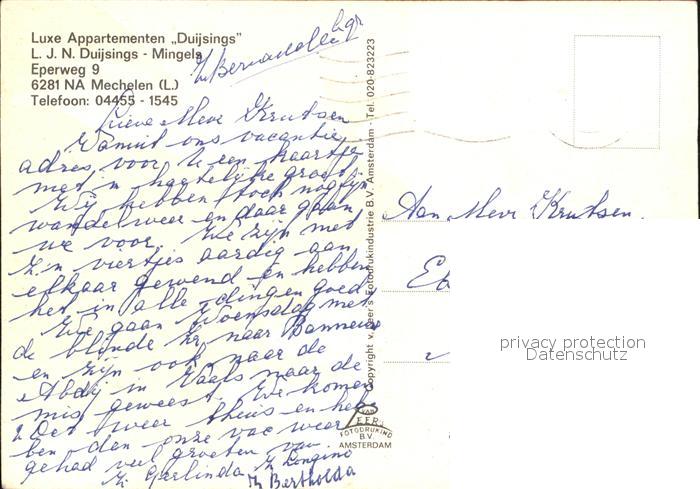 Luxe Appartementen „Duijsings"
L. J. N. Duijsings - Mingels
Eperweg 9
6281 NA Mechelen (L.)
Telefoon: 04455 - 1545
Zr Bernadelle
Lieve Mevr Krutsen
Vanuit ons vacantie
adres voor U een kaartje
met 'n hartelijke groet
Wij hebben toch nog fijn
wandelweer en daar gaan
we voor. We zijn met
z'n viertjes aardig aan
elkaar gewend en hebben
het in alle dingen goed
We gaan Woensdag met
de blinde Zr naar Banneux
en zijn ook naar de
Abdij in Vaals naar de
mis geweest. We komen
Oct weer thuis en heb
ben dan onze vac weer
gehad veel groeten van
Zr Gerlinda Zr Longino
Zr Bertholda
Copyright v. Leer's Fotodrukindustrie B.V. Amsterdam - Tel. 020-823223
VAN
LEER'S
FOTODRUKIND
B.V.
AMSTERDAM
Aan Mevr Krutsen.
privacy protection
Datenschutz